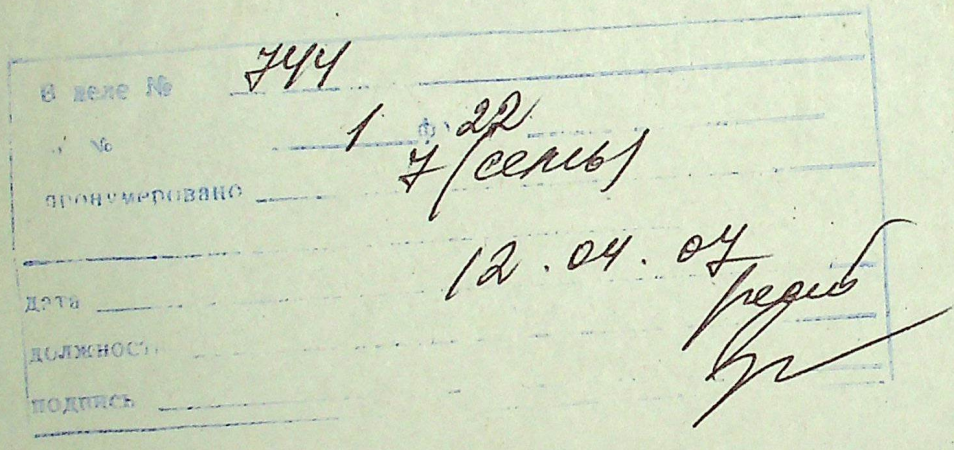 В деле № 744
№ 1 ф 22
пронумеровано 7 (семь)
дата 12.04.07
должность
подпись